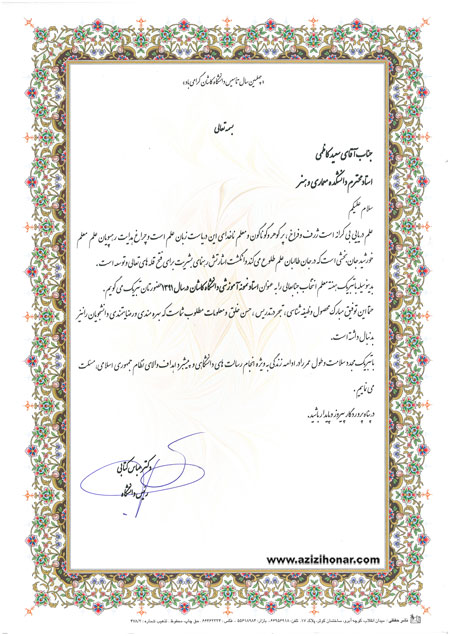 «چهلمین سال تاسیس دانشگاه کاشان گرامی باد»
بسمه تعالی
جناب آقای سعید کاظمی
استاد محترم دانشکده معماری و هنر
سلام علیکم
علم دریایی بی کرانه است ژرف و فراخ، پر گوهر و گوناگون و معلم ناخدای این دریاست زبان علم است و چراغ هدایت رهپویان علم معلم
خورشید جان بخشی است که در جان طالبان علم طلوع می کند و انگشت اشارتش رهنمای بشریت برای فتح قله های تعالی و توسعه است.
بدینوسیله با تبریک هفته معلم انتخاب جنابعالی را به عنوان استاد نمونه آموزشی دانشگاه کاشان در سال ۱۳۹۱ حضورتان تبریک می گویم.
حتما این توفیق مبارک محصول وظیفه شناسی، تبحر در تدریس، حسن خلق و معلومات مطلوب شماست که بهره مندی و رضایتمندی دانشجویان را نیز
بدنبال داشته است.
با تبریک مجدد سلامت و طول عمر را در ادامه زندگی به ویژه انجام رسالت های دانشگاهی و پیشبرد اهداف والای نظام جمهوری اسلامی، مسئلت
می نمایم.
در پناه پروردگار پیروز و پایدار باشید.
دکتر عباس کتابی
رئیس دانشگاه
www.azizihonar.com